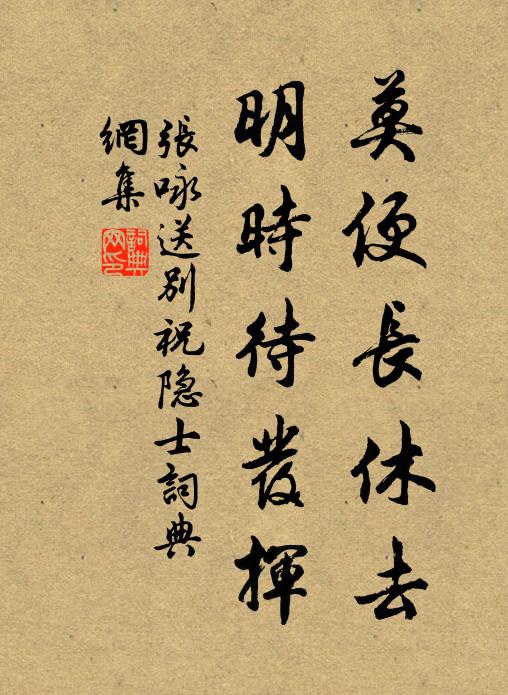 莫便長休去
明時待發揮
張咏送别祝隐士詞典
網集
詞典
网印